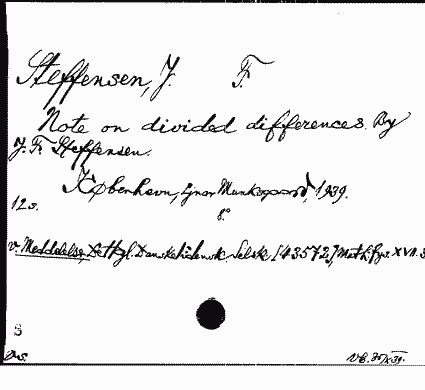 Steffensen, J. F.
Note on divided differences. By
J. F. Steffensen.
København, Ejnar Munksgaard, 1939.
12s. 8°
v. Meddelelser, Det Kgl. Danske Vidensk. Selsk. [43572], Math. fys. XVII. 3
S